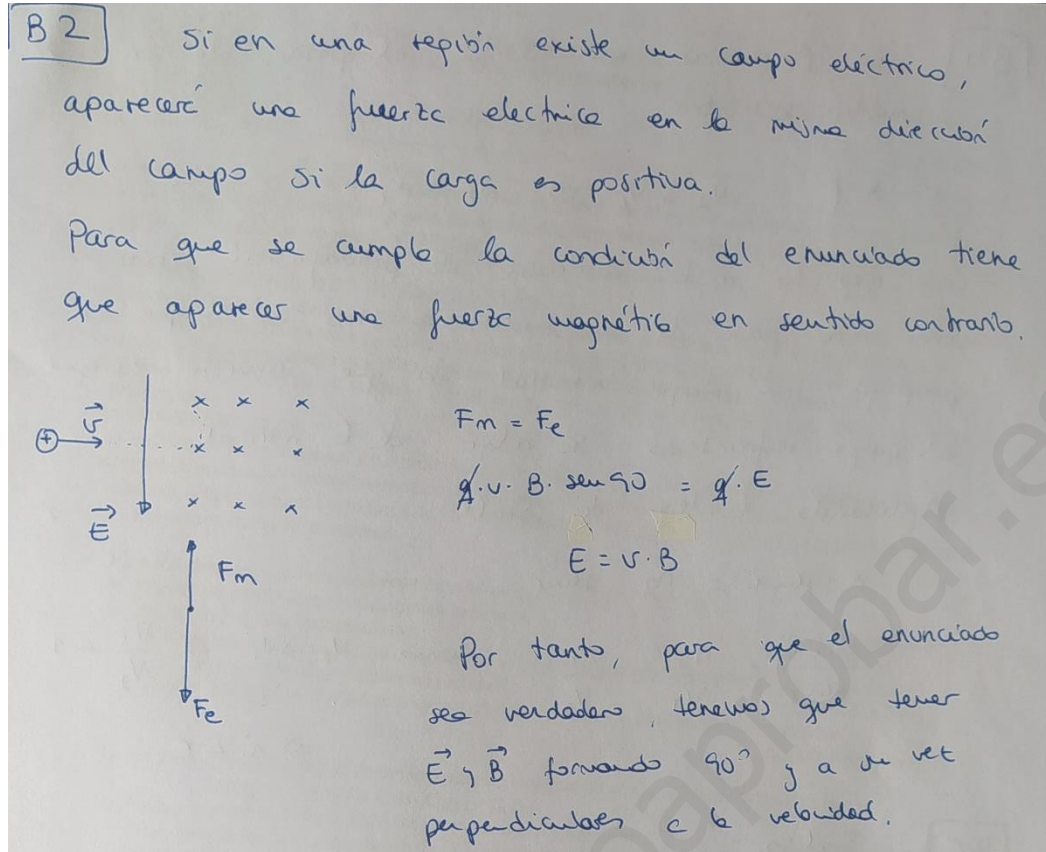 B 2
Si en una región existe un campo eléctrico,
aparecerá una fuerza electrica en la misma dirección
del campo si la carga es positiva.
Para que se cumpla la condición del enunciado tiene
que aparecer una fuerza magnética en sentido contrario.
x x x
+ v⃗ x x x
E⃗ x x x
Fm
Fe
Fm = Fe
q·v·B·sen 90 = q·E
E = v·B
Por tanto, para que el enunciado
sea verdadero, tenemos que tener
E⃗ y B⃗ formando 90° y a su vez
perpendiculares a la velocidad.